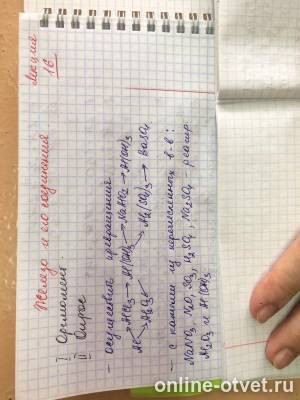 Лекция 16
Железо и его соединения
I Оргмомент.
II Опрос
– осуществить превращения
Al → AlCl3 → Al(OH)3 → NaAlO2 → Al(OH)3
Al2O3 Al2(SO4)3 → BaSO4
– с какими из перечисленных в-в:
NaNO3, SO3, H2SO4, Na2SO4 реагир.
Al2O3 и Al(OH)3
online-otvet.ru